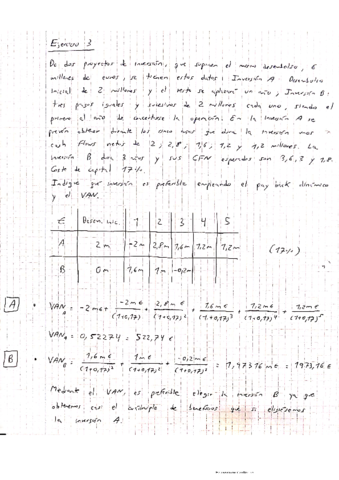 Ejercicio 3
De dos proyectos de inversión, que suponen el mismo desembolso, 6
millones de euros, se tienen estos datos: Inversión A: Desembolso
inicial de 2 millones y el resto se aplazará un año, Inversión B:
tres pagos iguales y sucesivos de 2 millones cada uno, siendo el
primero al de la operación. En la inversión A se
prevén obtener durante los cinco años que dura la inversión unos
cash flows netos de 2; 2,8; 1,6; 1,2 y 1,2 millones. La
inversión B dura 3 años y sus CFN esperados son 3,6, 3 y 1,8.
Coste de capital 17%.
Indique qué inversión es preferible empleando el pay back dinámico
y el VAN.
€ Desem. inic. 1 2 3 4 5
A 2m -2m 2,8m 1,6m 1,2m 1,2m (17%)
B 0m 1,6m 1m -0,2m
A • VAN_A = -2m€ + -2m€/(1+0,17)¹ + 2,8m€/(1+0,17)² + 1,6m€/(1+0,17)³ + 1,2m€/(1+0,17)⁴ + 1,2m€/(1+0,17)⁵
VAN_A = 0,52274 = 522,74 €
B • VAN_B = 1,6m€/(1+0,17)¹ + 1m€/(1+0,17)² + -0,2m€/(1+0,17)³ = 1,97316 m€ = 1973,16 €
Mediante el VAN, es preferible elegir la inversión B ya que
obtenemos casi el de beneficios que si eligiésemos
la inversión A.